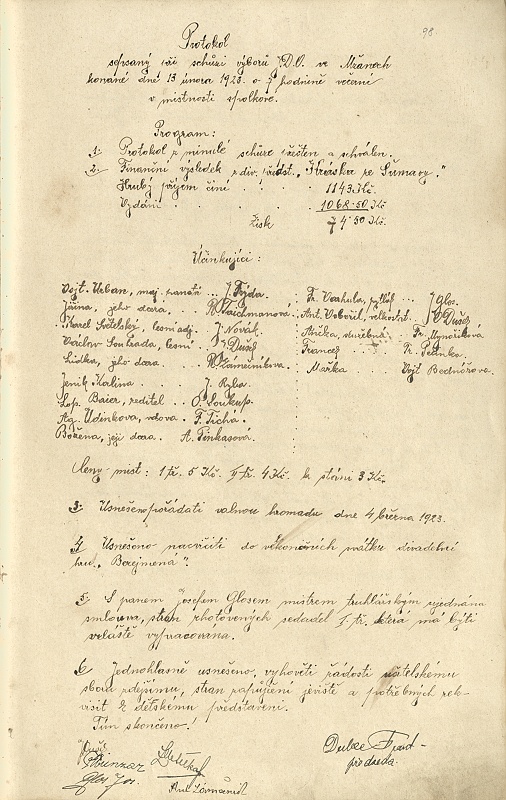 98
Protokol
sepsaný při schůzi výboru S.D.O. ve Mžanech
konané dne 13 února 1923 o 7 hodině večerní
v místnosti spolkové.
Program:
1. Protokol z minulé schůze přečten a schválen.
2. Finanční výsledek z div. předst. „Havéska ze Šumavy."
Hrubý příjem činí 1143 Kč.
Vydání . . . . 1068·50 Kč
Zisk 74·50 Kč.
Účinkující:
Vojt. Urban, maj. panství .. J. Fejda.
Jiřina, jeho dcera ... R. Tlaichmanová.
Karel Světelský, lesní adj. .. J. Novák.
Václav Soukada, lesní .. J. Dušek
Lidka, jeho dcera ... R. Zámečníkova.
Jeník Kalina ... J. Ryba.
Leop. Baier, ředitel .. O. Soukup.
Ag. Udínkova, vdova .. F. Tichá.
Božena, její dcera . A. Finkasová.
Fr. Vochula, pytlák .. J. Glos.
Ant. Vobořil, velkostat. V. Dušek
Anička, služebná .. Fr. Mynaříková
Francek .. Fr. Petinka.
Marka Vojt. Bednářova.
Ceny míst: I tř. 5 Kč. II tř. 4 Kč. k stání 3 Kč.
3. Usneseno pořádati valnou hromadu dne 4 března 1923.
4. Usneseno nacvičiti do velikonočních svátků divadelní
hru „Borejmena".
5. S panem Josefem Glosem mistrem truhlářským ujednána
smlouva, stran zhotovených sedadel I. tř. která má býti
zvláště vypracována.
6. Jednohlasně usneseno, vyhověti žádosti učitelskému
sboru zdejšímu, stran zapůjčení jeviště a potřebných rek-
visit k dětskému představení.
Tím skončeno!
Glos Jos.
předseda.